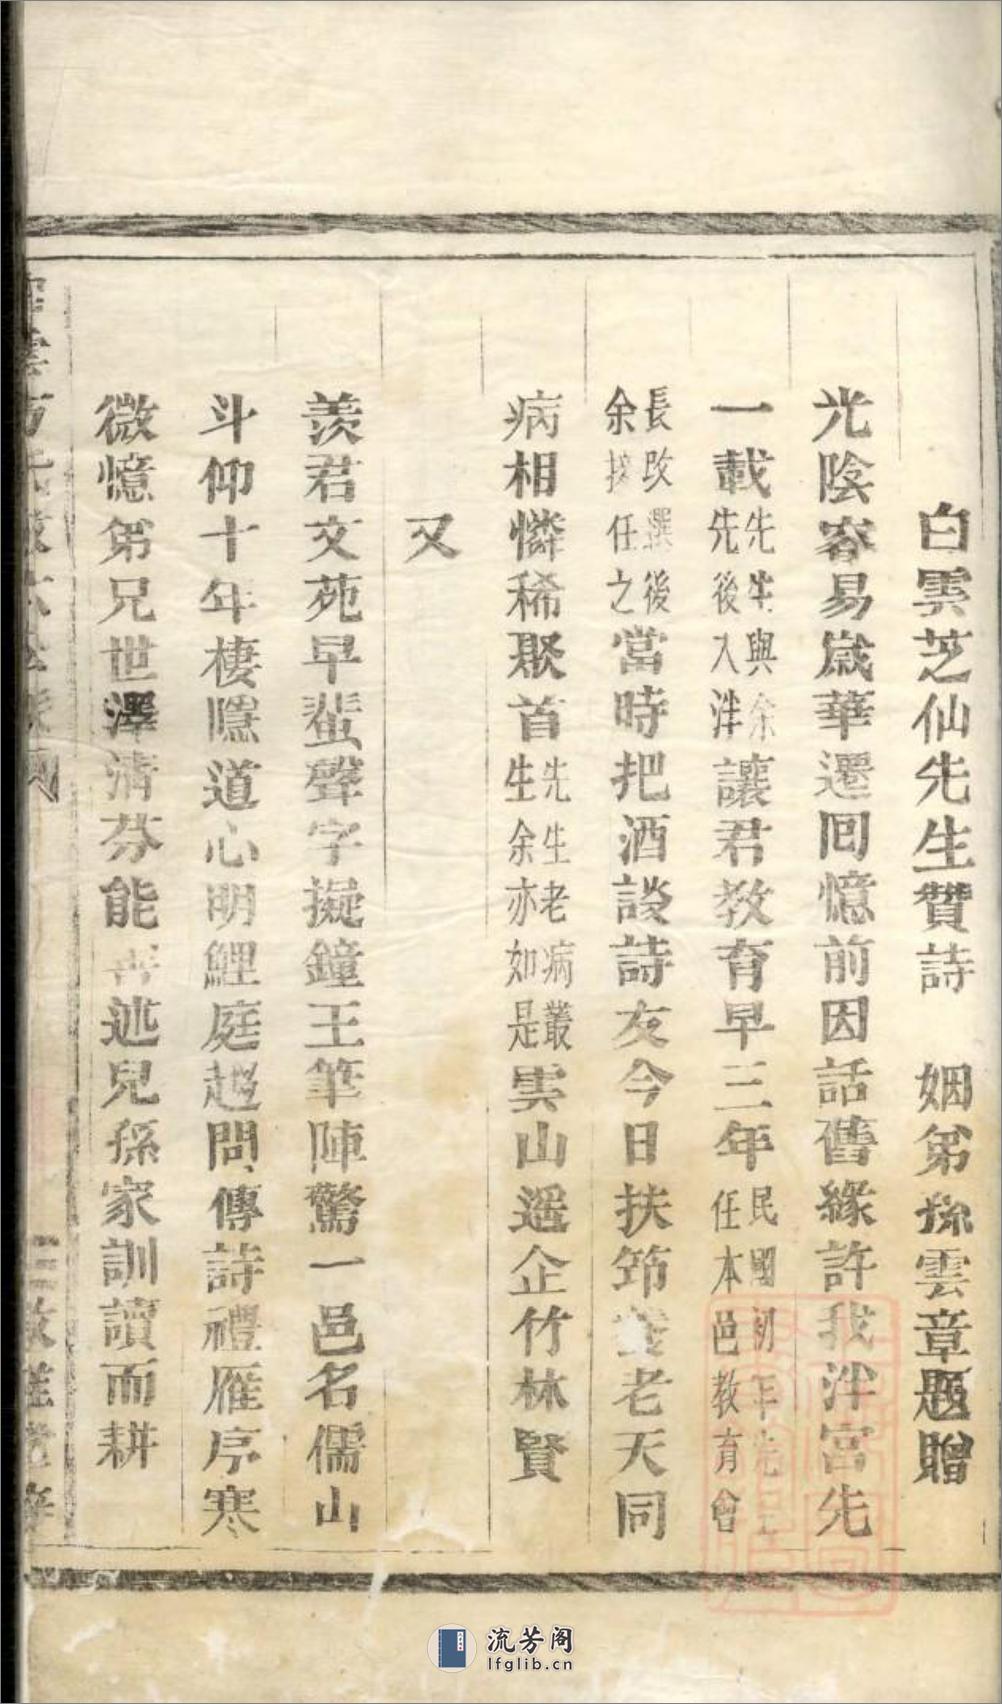 白雲芝仙先生贊詩　姻弟孫雲章題贈
光陰容易歲華遷回憶前因話舊緣許我泮宮先
一載先生與余先後入泮讓君教育早三年民國初年先生任本邑教育會
長改選後余接任之當時把酒談詩友今日扶筇養老天同
病相憐稀聚首先生老病叢生余亦如是雲山遥企竹林賢
又
羨君文苑早蜚聲字擬鐘王筆陣驚一邑名儒山
斗仰十年棲隱道心明鯉庭趨問傳詩禮雁序寒
微憶弟兄世澤清芬能善述兒孫家訓讀而耕
流芳阁
lfglib.cn